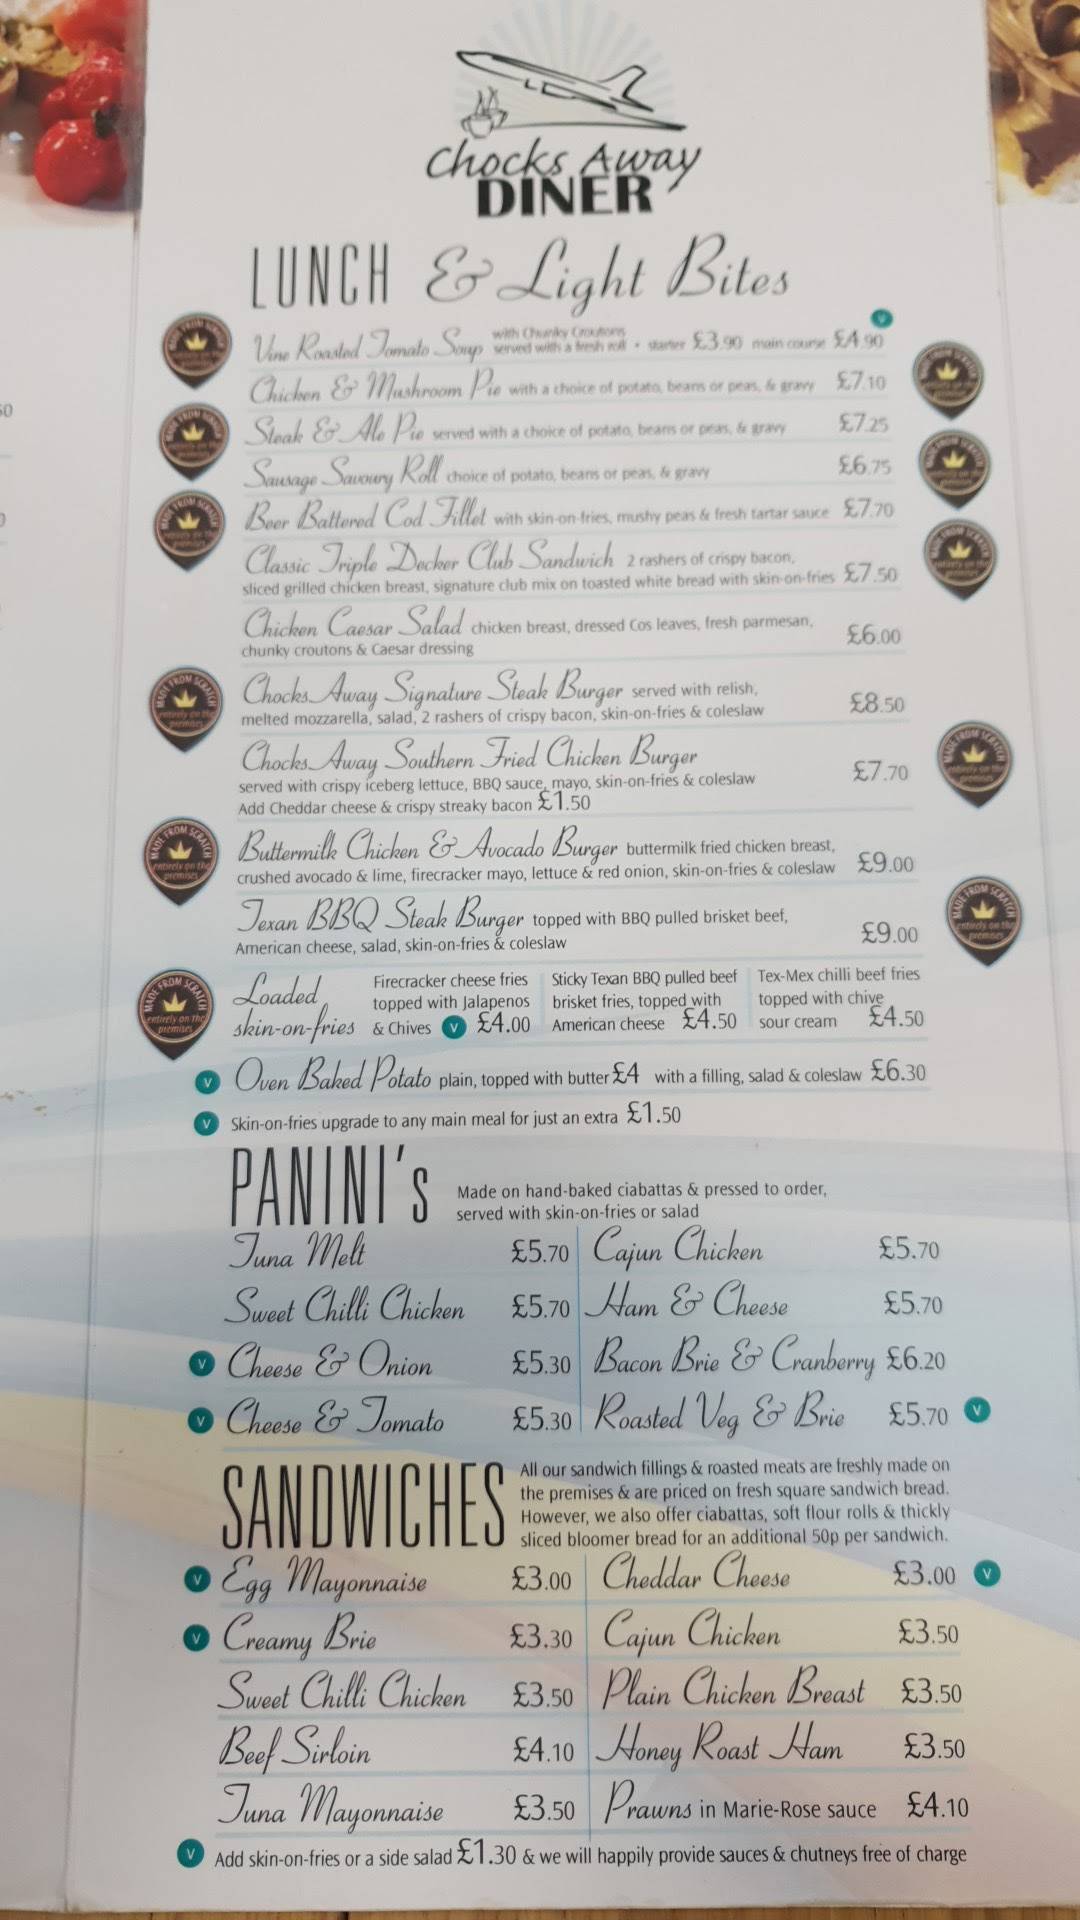 Chocks Away
DINER
LUNCH & Light Bites
Vine Roasted Tomato Soup with Chunky Croutons
served with a fresh roll • starter £3.90 main course £4.90 V
Chicken & Mushroom Pie with a choice of potato, beans or peas, & gravy £7.10
Steak & Ale Pie served with a choice of potato, beans or peas, & gravy £7.25
Sausage Savoury Roll choice of potato, beans or peas, & gravy £6.75
Beer Battered Cod Fillet with skin-on-fries, mushy peas & fresh tartar sauce £7.70
Classic Triple Decker Club Sandwich 2 rashers of crispy bacon,
sliced grilled chicken breast, signature club mix on toasted white bread with skin-on-fries £7.50
Chicken Caesar Salad chicken breast, dressed Cos leaves, fresh parmesan,
chunky croutons & Caesar dressing £6.00
Chocks Away Signature Steak Burger served with relish,
melted mozzarella, salad, 2 rashers of crispy bacon, skin-on-fries & coleslaw £8.50
Chocks Away Southern Fried Chicken Burger
served with crispy iceberg lettuce, BBQ sauce, mayo, skin-on-fries & coleslaw £7.70
Add Cheddar cheese & crispy streaky bacon £1.50
Buttermilk Chicken & Avocado Burger buttermilk fried chicken breast,
crushed avocado & lime, firecracker mayo, lettuce & red onion, skin-on-fries & coleslaw £9.00
Texan BBQ Steak Burger topped with BBQ pulled brisket beef,
American cheese, salad, skin-on-fries & coleslaw £9.00
MADE FROM SCRATCH
entirely on the
premises
Loaded
skin-on-fries
Firecracker cheese fries
topped with Jalapenos
& Chives V £4.00
Sticky Texan BBQ pulled beef
brisket fries, topped with
American cheese £4.50
Tex-Mex chilli beef fries
topped with chive
sour cream £4.50
V Oven Baked Potato plain, topped with butter £4 with a filling, salad & coleslaw £6.30
V Skin-on-fries upgrade to any main meal for just an extra £1.50
PANINI's
Made on hand-baked ciabattas & pressed to order,
served with skin-on-fries or salad
Tuna Melt £5.70 Cajun Chicken £5.70
Sweet Chilli Chicken £5.70 Ham & Cheese £5.70
V Cheese & Onion £5.30 Bacon Brie & Cranberry £6.20
V Cheese & Tomato £5.30 Roasted Veg & Brie £5.70 V
SANDWICHES
All our sandwich fillings & roasted meats are freshly made on
the premises & are priced on fresh square sandwich bread.
However, we also offer ciabattas, soft flour rolls & thickly
sliced bloomer bread for an additional 50p per sandwich.
V Egg Mayonnaise £3.00 Cheddar Cheese £3.00 V
V Creamy Brie £3.30 Cajun Chicken £3.50
Sweet Chilli Chicken £3.50 Plain Chicken Breast £3.50
Beef Sirloin £4.10 Honey Roast Ham £3.50
Tuna Mayonnaise £3.50 Prawns in Marie-Rose sauce £4.10
V Add skin-on-fries or a side salad £1.30 & we will happily provide sauces & chutneys free of charge